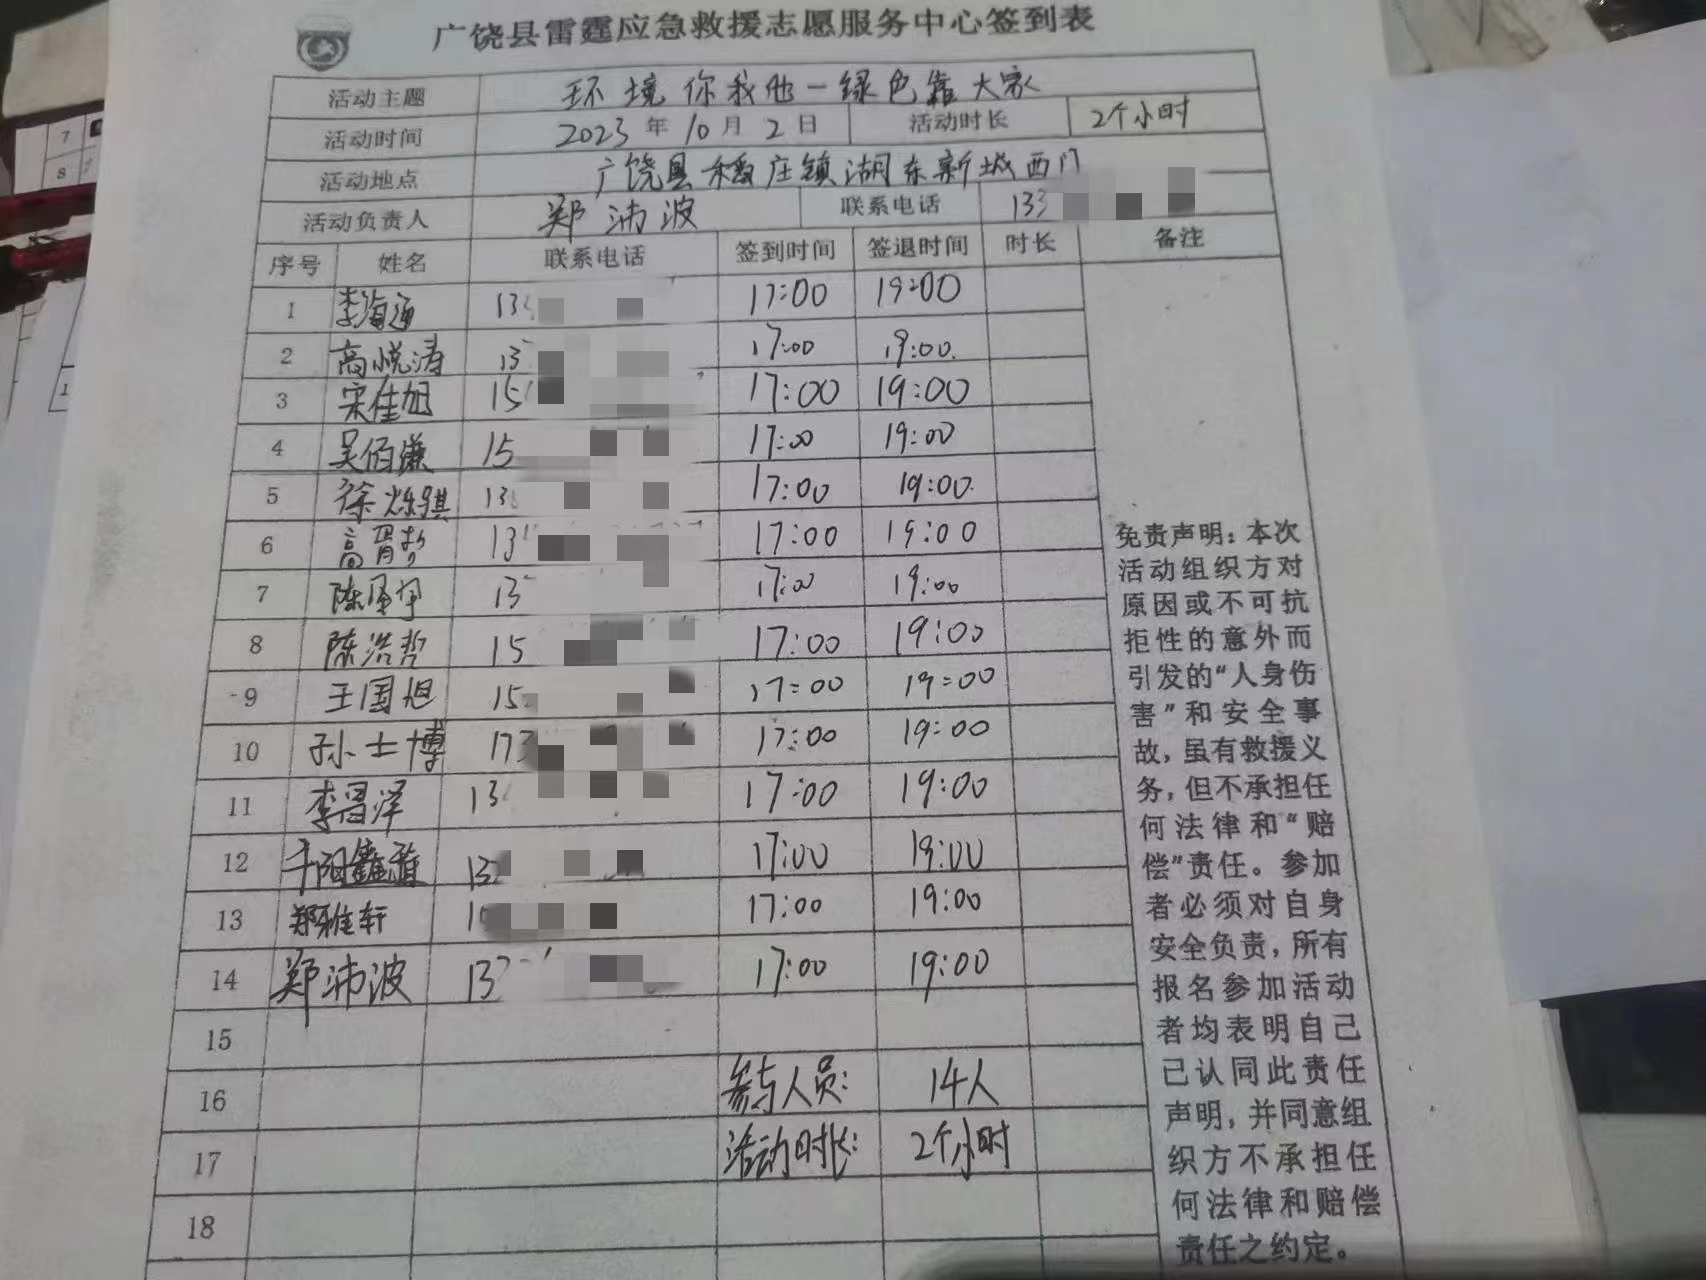 广饶县雷霆应急救援志愿服务中心签到表
活动主题 环境你我他一绿色靠大家
活动时间 2023年10月2日 活动时长 2个小时
活动地点 广饶县稻庄镇湖东新城西门
活动负责人 郑沛波 联系电话 133
序号 姓名 联系电话 签到时间 签退时间 时长 备注
1 李海通 13 17:00 19:00
2 高悦涛 13 17:00 19:00
3 宋佳旭 15 17:00 19:00
4 吴佰谦 15 17:00 19:00
5 徐烁骐 13 17:00 19:00
6 高 13 17:00 19:00
7 陈 13 17:00 19:00
8 陈浩哲 15 17:00 19:00
9 王国旭 15 17:00 19:00
10 孙士博 173 17:00 19:00
11 李昌泽 13 17:00 19:00
12 13 17:00 19:00
13 郑雅轩 1 17:00 19:00
14 郑沛波 13 17:00 19:00
15
16 参与人员: 14人
17 活动时长: 2个小时
18
免责声明:本次
活动组织方对
原因或不可抗
拒性的意外而
引发的“人身伤
害”和安全事
故,虽有救援义
务,但不承担任
何法律和“赔
偿”责任。参加
者必须对自身
安全负责,所有
报名参加活动
者均表明自己
已认同此责任
声明,并同意组
织方不承担任
何法律和赔偿
责任之约定。
7
8